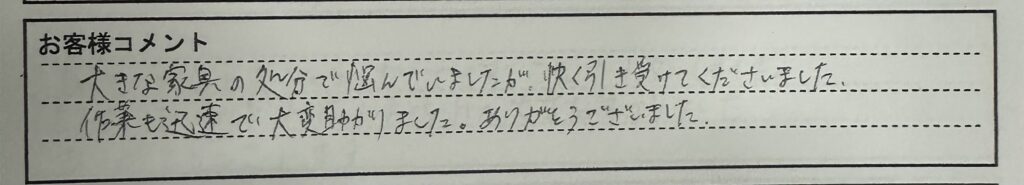 お客様コメント
大きな家具の処分で悩んでいましたが、快く引き受けてくださいました.
作業も迅速で大変助かりました。ありがとうございました.